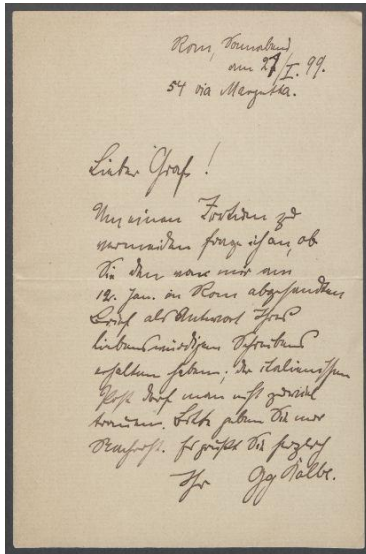 Rom, Sonnabend
am 27/I. 99.
54 via Margutta.
Lieber Graf!
Um einen Irrtum zu
vermeiden frage ich an, ob
Sie den von mir am
12. Jan. in Rom abgesandten
Brief als Antwort Ihres
liebenswürdigen Schreibens
erhalten haben; der italienischen
Post darf man nicht zuviel
trauen. Bitte geben Sie mir
Nachricht. Es grüßt Sie herzlich
Ihr Gg Kolbe.